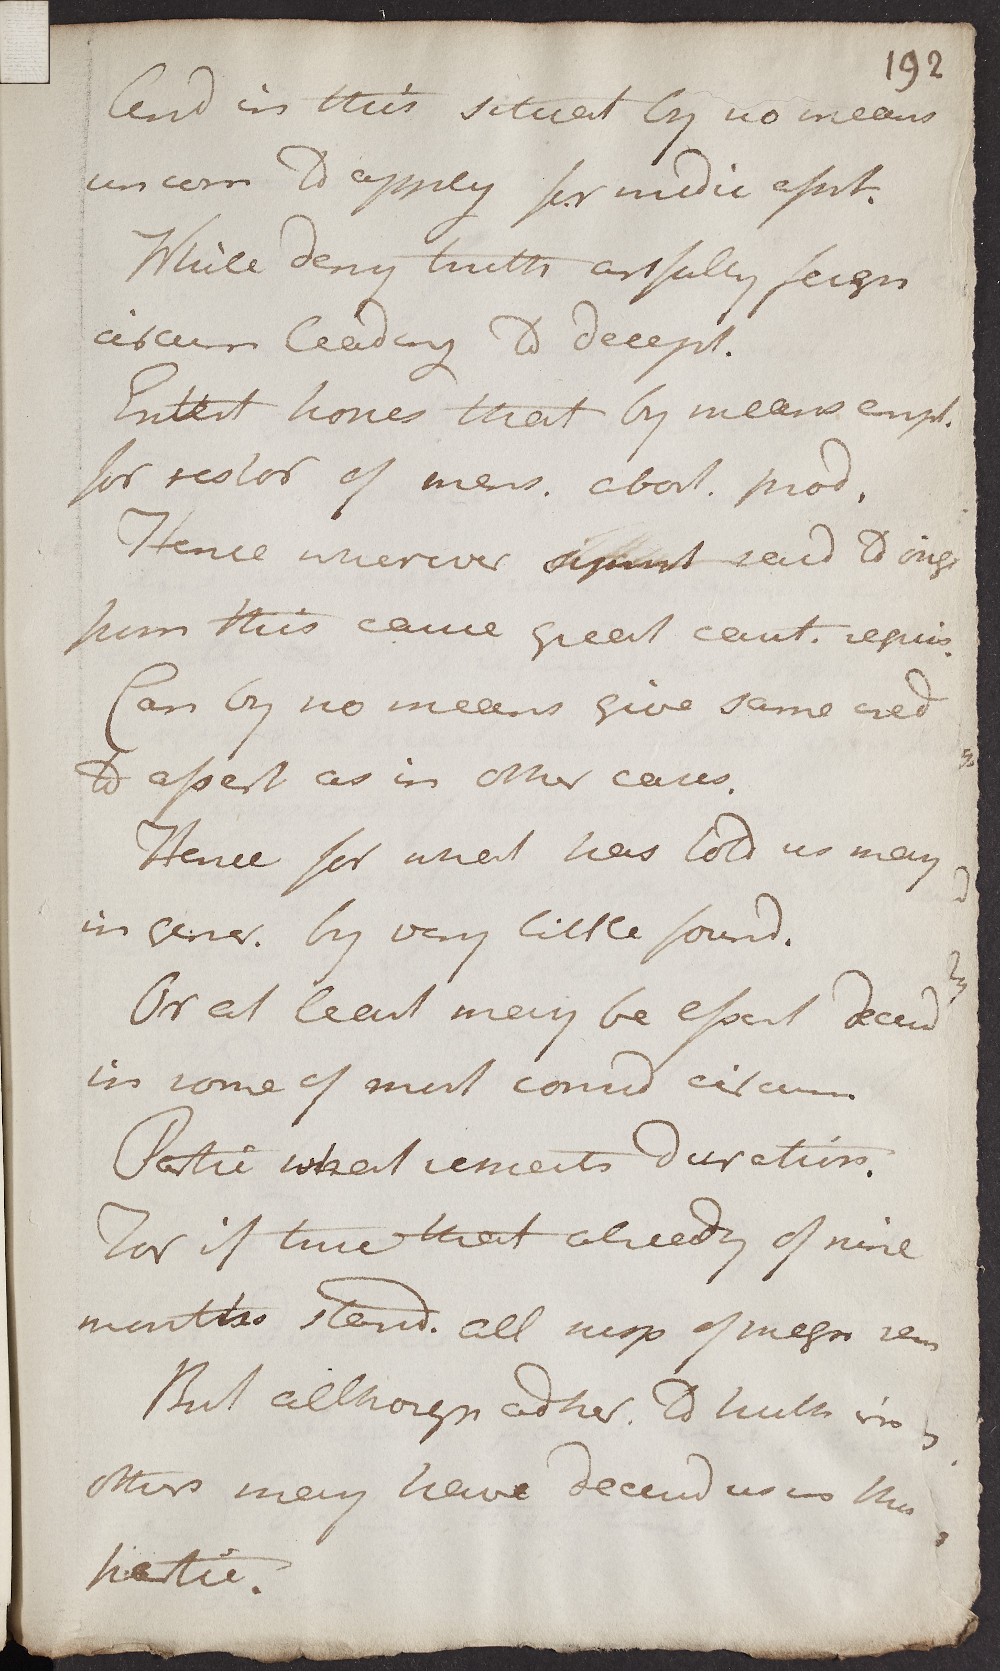 192
And in this situat by no means
uncom to apply for medic assist.
While deny truth artfully feign
circum leading to decept.
Entert hopes that by means empl.
for restor of mens. abort. prod.
Hence wherever said to orig
from this cause great caut. requis.
Can by no means give same cred
to assert as in other cases.
Hence for what has told us may
in gener. by very little found.
Or at least may be assert deceived
in some of most consid circum
Partic what respects duration.
For if true that already of nine
months stand. all susp of pregn rem
But although adher. to truth in
others may have deceived us in this
partic.